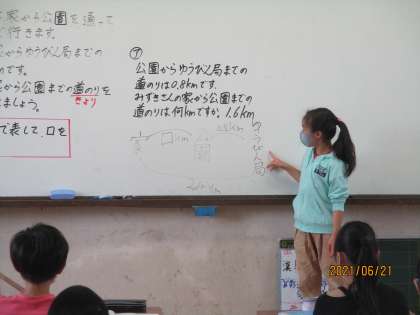 家から公園を通って
で行きます。
家からゆうびん局までの
mです。
家から公園までの道のりを
きょり
きましょう。
で表して、口を
⑦
公園からゆうびん局までの
道のりは0.8kmです。
みずきさんの家から公園までの
道のりは何kmですか。1.6km
km
公園
0.8km
ゆうびん局
2021/06/21